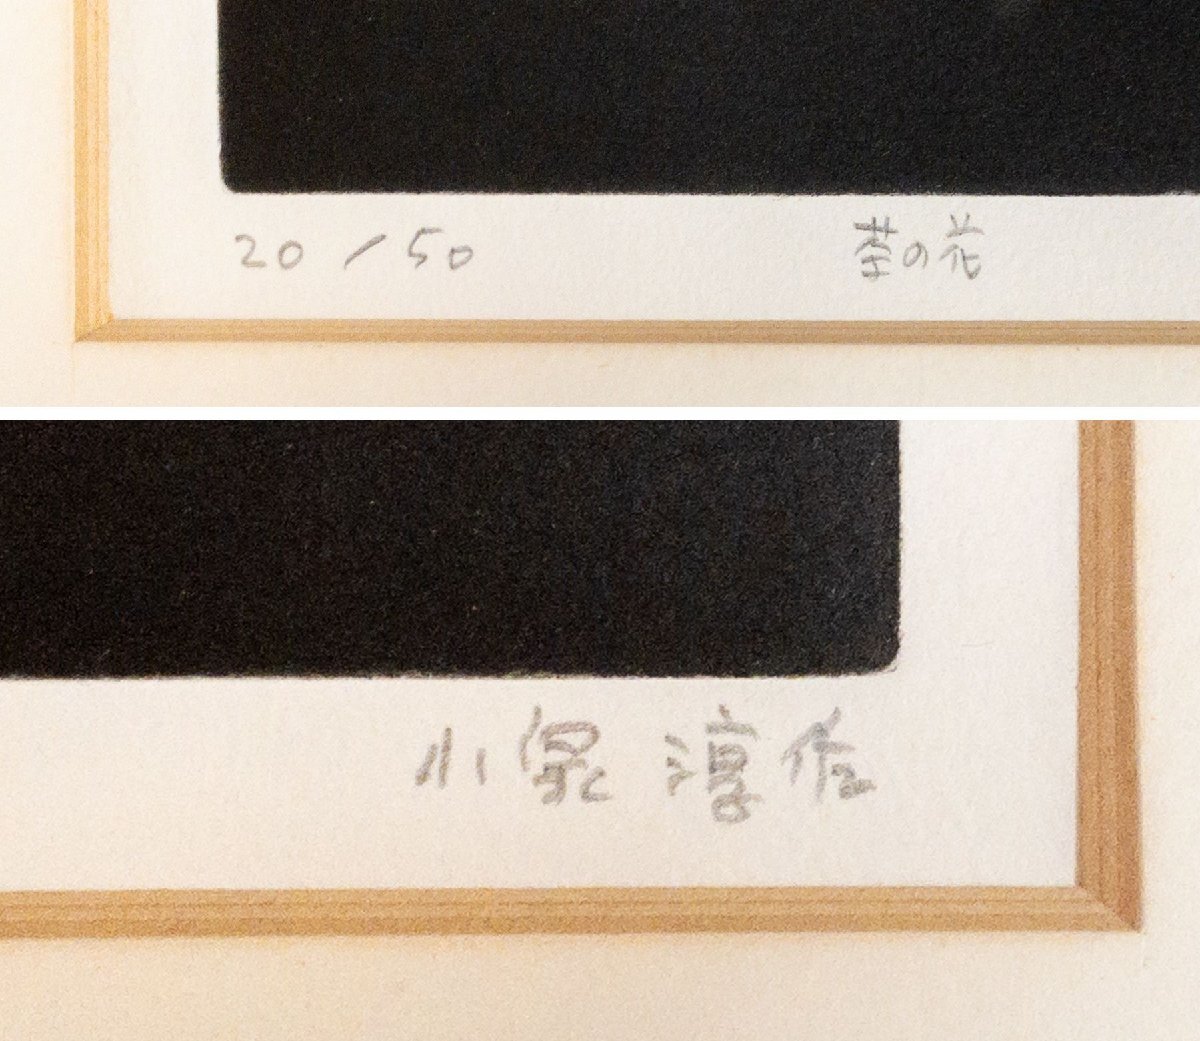 20 / 50
菜の花
小泉 淳作